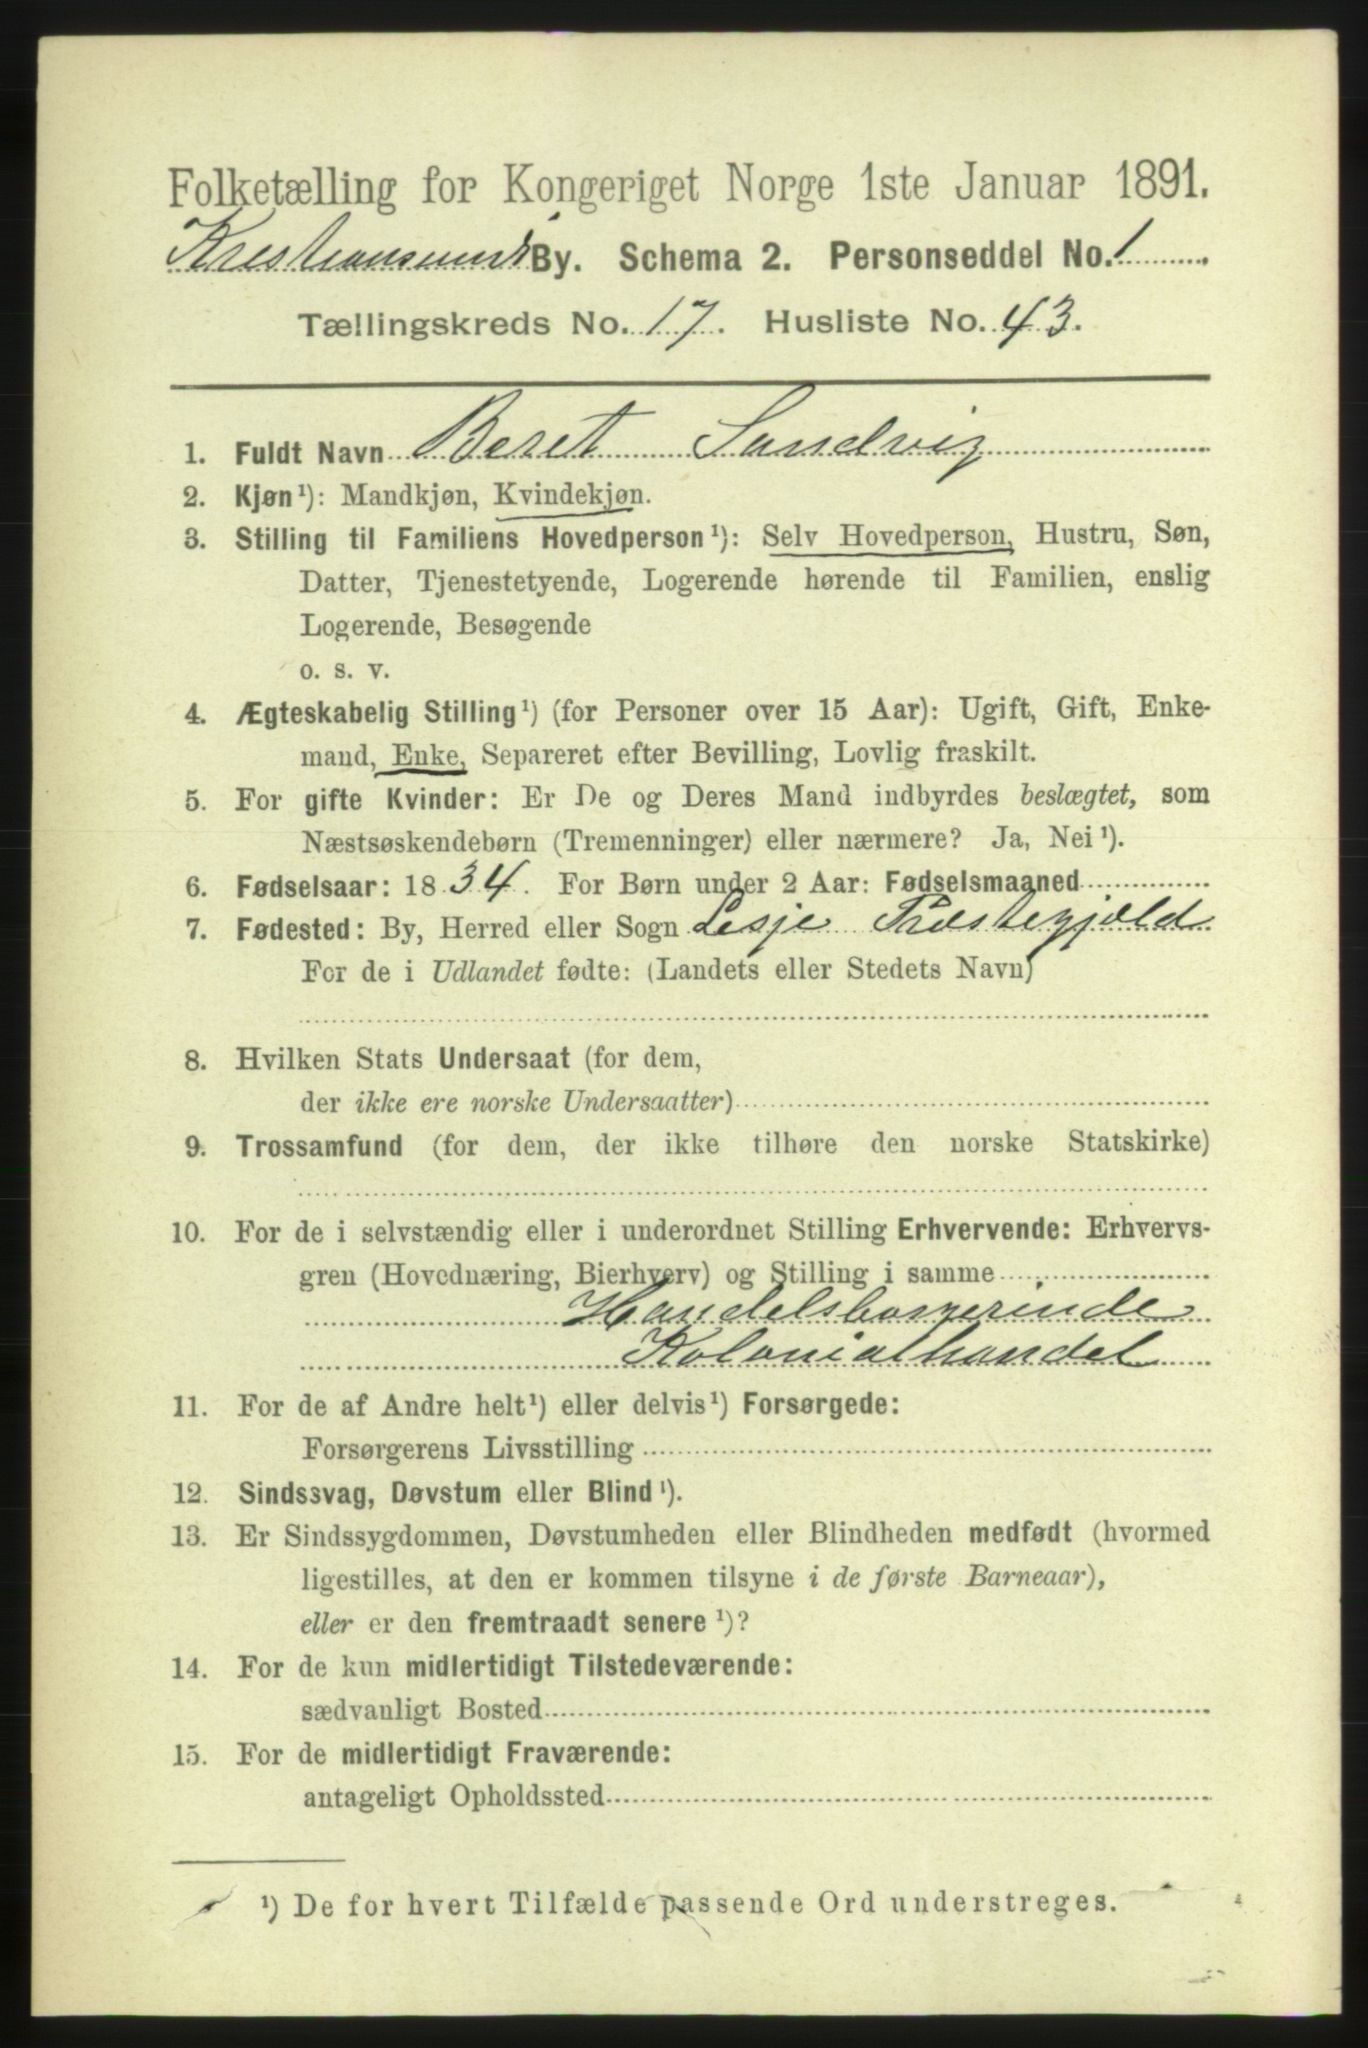 Folketælling for Kongeriget Norge 1ste Januar 1891.
Kristiansunds By. Schema 2. Personseddel No. 1
Tællingskreds No. 17. Husliste No. 43.
1. Fuldt Navn Beret Sandvig
2. Kjøn¹): Mandkjøn, Kvindekjøn.
3. Stilling til Familiens Hovedperson¹): Selv Hovedperson, Hustru, Søn,
Datter, Tjenestetyende, Logerende hørende til Familien, enslig
Logerende, Besøgende
o. s. v.
4. Ægteskabelig Stilling¹) (for Personer over 15 Aar): Ugift, Gift, Enke-
mand, Enke, Separeret efter Bevilling, Lovlig fraskilt.
5. For gifte Kvinder: Er De og Deres Mand indbyrdes beslægtet, som
Næstsøskendebørn (Tremenninger) eller nærmere? Ja, Nei¹).
6. Fødselsaar: 1834. For Børn under 2 Aar: Fødselsmaaned
7. Fødested: By, Herred eller Sogn Lesje Præstegjæld
For de i Udlandet fødte: (Landets eller Stedets Navn)
8. Hvilken Stats Undersaat (for dem,
der ikke ere norske Undersaatter)
9. Trossamfund (for dem, der ikke tilhøre den norske Statskirke)
10. For de i selvstændig eller i underordnet Stilling Erhvervende: Erhvervs-
gren (Hovednæring, Bierhverv) og Stilling i samme
Handelsborgerinde
Kolonialhandel
11. For de af Andre helt¹) eller delvis¹) Forsørgede:
Forsørgerens Livsstilling
12. Sindssvag, Døvstum eller Blind¹).
13. Er Sindssygdommen, Døvstumheden eller Blindheden medfødt (hvormed
ligestilles, at den er kommen tilsyne i de første Barneaar),
eller er den fremtraadt senere¹)?
14. For de kun midlertidigt Tilstedeværende:
sædvanligt Bosted
15. For de midlertidigt Fraværende:
antageligt Opholdssted
¹) De for hvert Tilfælde passende Ord understreges.